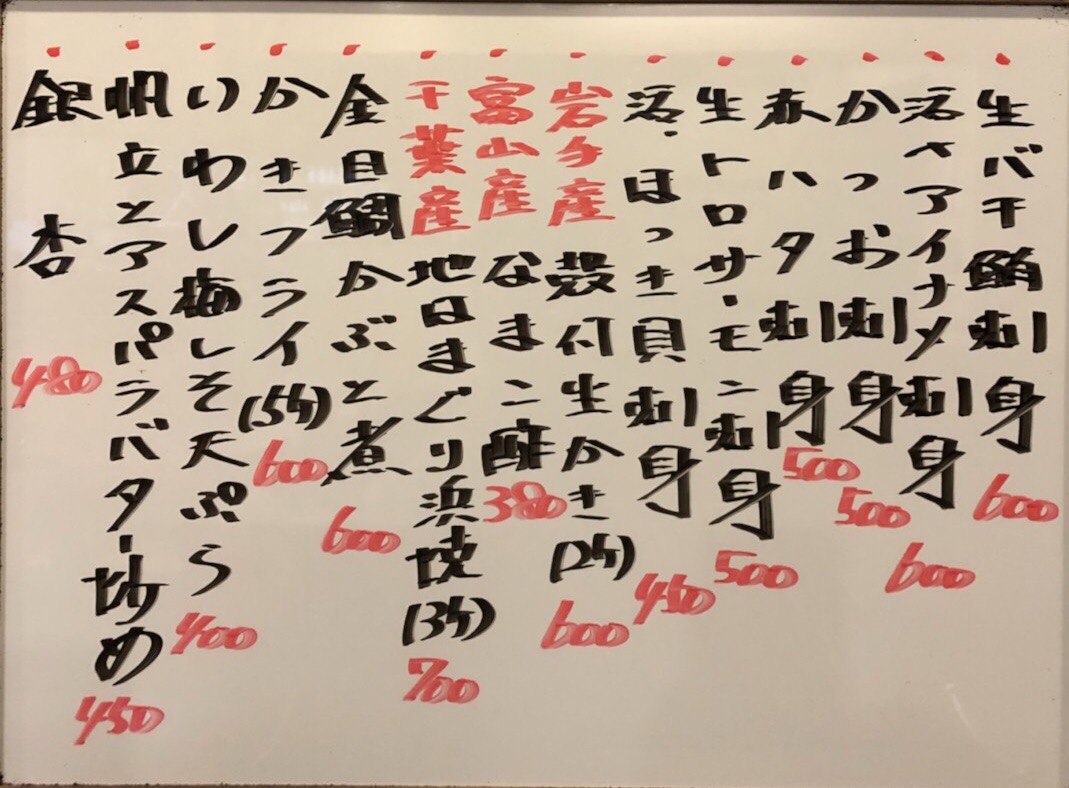 生バチ鮪刺身 600
活〆アイナメ刺身 600
かつお刺身 500
赤ハタ刺身 500
生トロサーモン刺身 500
活・ほっき貝刺身 450
岩手産 殻付生かき(2ケ) 600
富山産 なまこ酢 380
千葉産 地はまぐり浜焼(3ケ) 700
金目鯛かぶと煮 600
かきフライ(5ケ) 600
いわし梅しそ天ぷら 400
帆立とアスパラバター炒め 450
銀杏 480